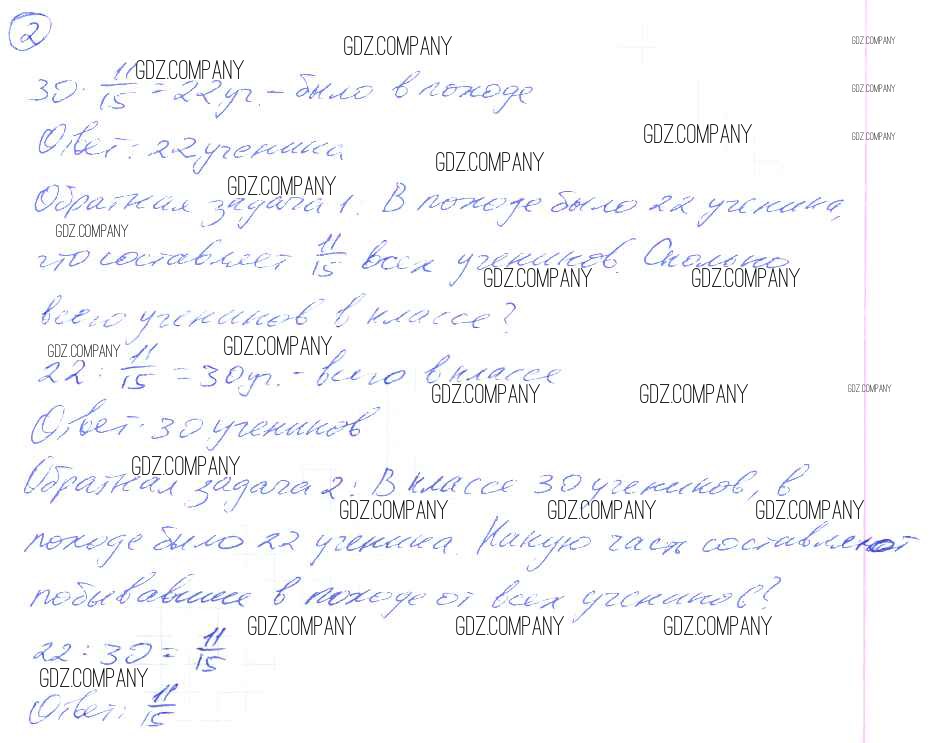 2
GDZ.COMPANY
GDZ.COMPANY
GDZ.COMPANY
30 · 11/15 = 22 уч. - было в походе
GDZ.COMPANY
GDZ.COMPANY
GDZ.COMPANY
Ответ: 22 ученика
GDZ.COMPANY
GDZ.COMPANY
Обратная задача 1: В походе было 22 ученика,
GDZ.COMPANY
что составляет 11/15 всех учеников. Сколько
GDZ.COMPANY
GDZ.COMPANY
всего учеников в классе?
GDZ.COMPANY
GDZ.COMPANY
22 : 11/15 = 30 уч. - всего в классе
GDZ.COMPANY
GDZ.COMPANY
GDZ.COMPANY
Ответ: 30 учеников
GDZ.COMPANY
Обратная задача 2: В классе 30 учеников, в
GDZ.COMPANY
GDZ.COMPANY
GDZ.COMPANY
походе было 22 ученика. Какую часть составляют
побывавшие в походе от всех учеников?
GDZ.COMPANY
GDZ.COMPANY
GDZ.COMPANY
22 : 30 = 11/15
GDZ.COMPANY
Ответ: 11/15